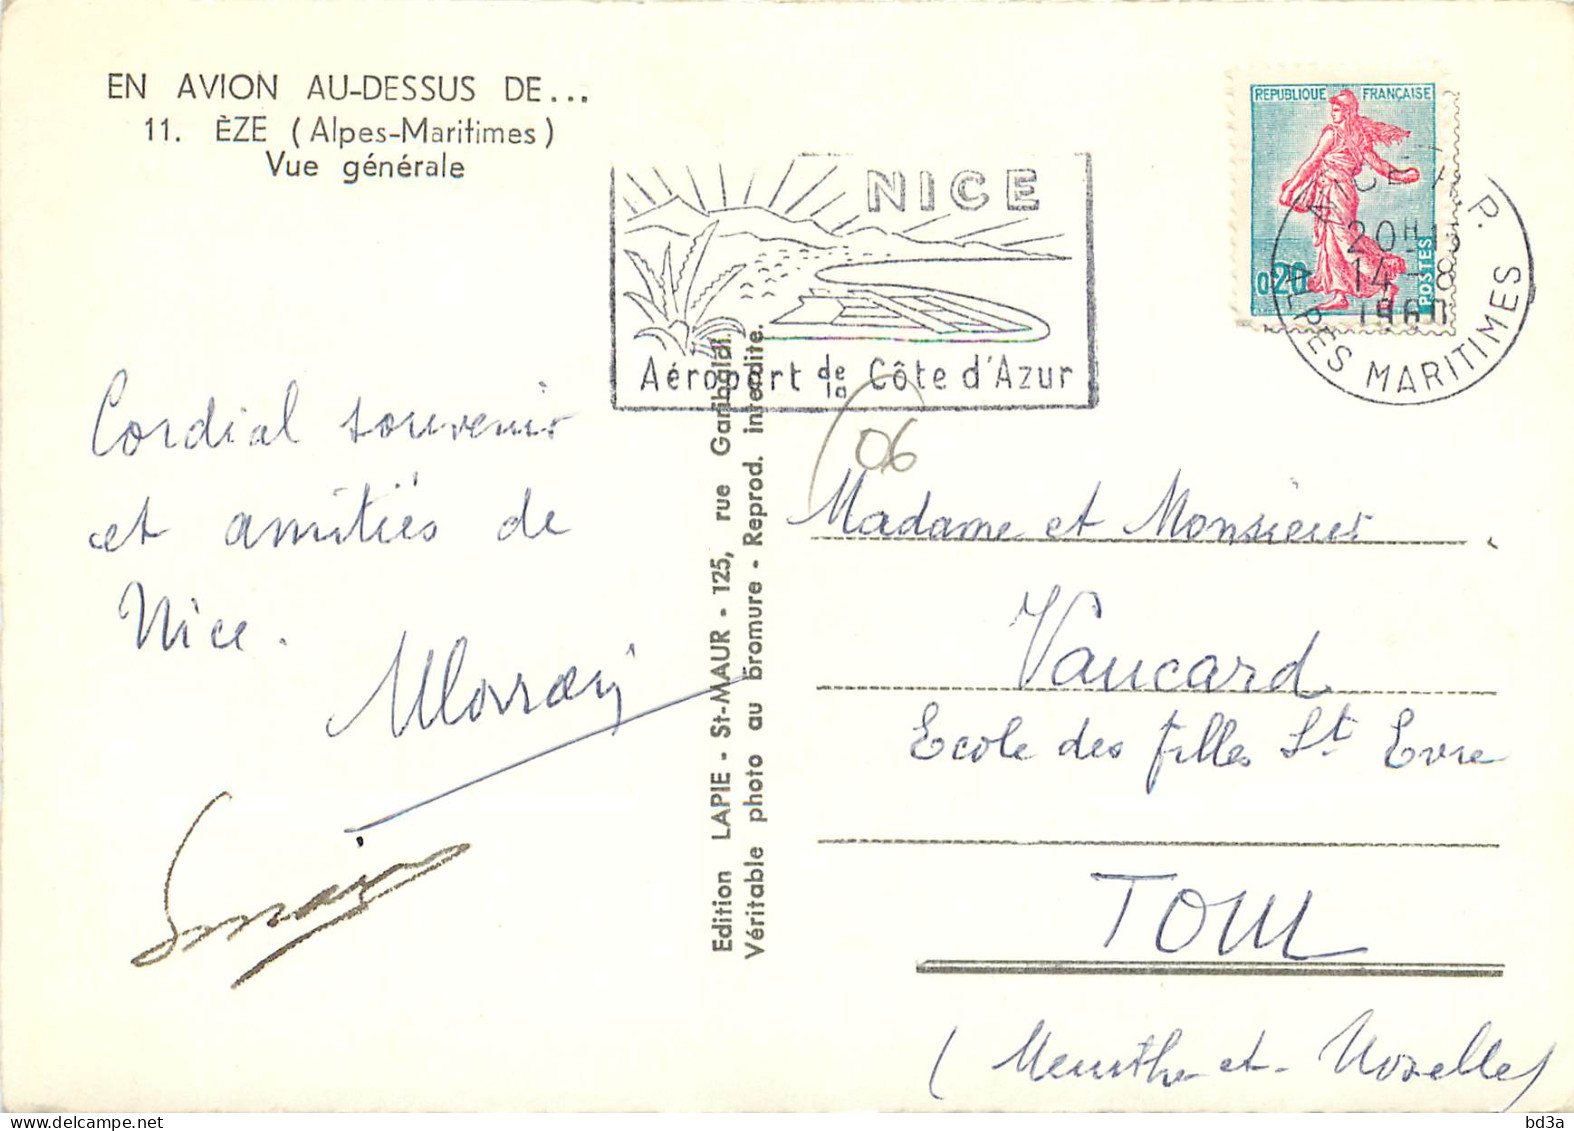 EN AVION AU-DESSUS DE...
11. ÈZE (Alpes-Maritimes)
Vue générale
NICE
Aéroport de la Côte d'Azur
REPUBLIQUE FRANÇAISE
0,20
POSTES
NICE R.P.
20H15
14-8
1960
ALPES MARITIMES
06
Cordial souvenir
et amitiés de
Nice.
Edition LAPIE - St-MAUR - 125, rue Garibaldi.
Véritable photo au bromure - Reprod. interdite.
Madame et Monsieur
Vaucard
Ecole des filles St Evre
TOUL
(Meurthe-et-Moselle)
bd3a